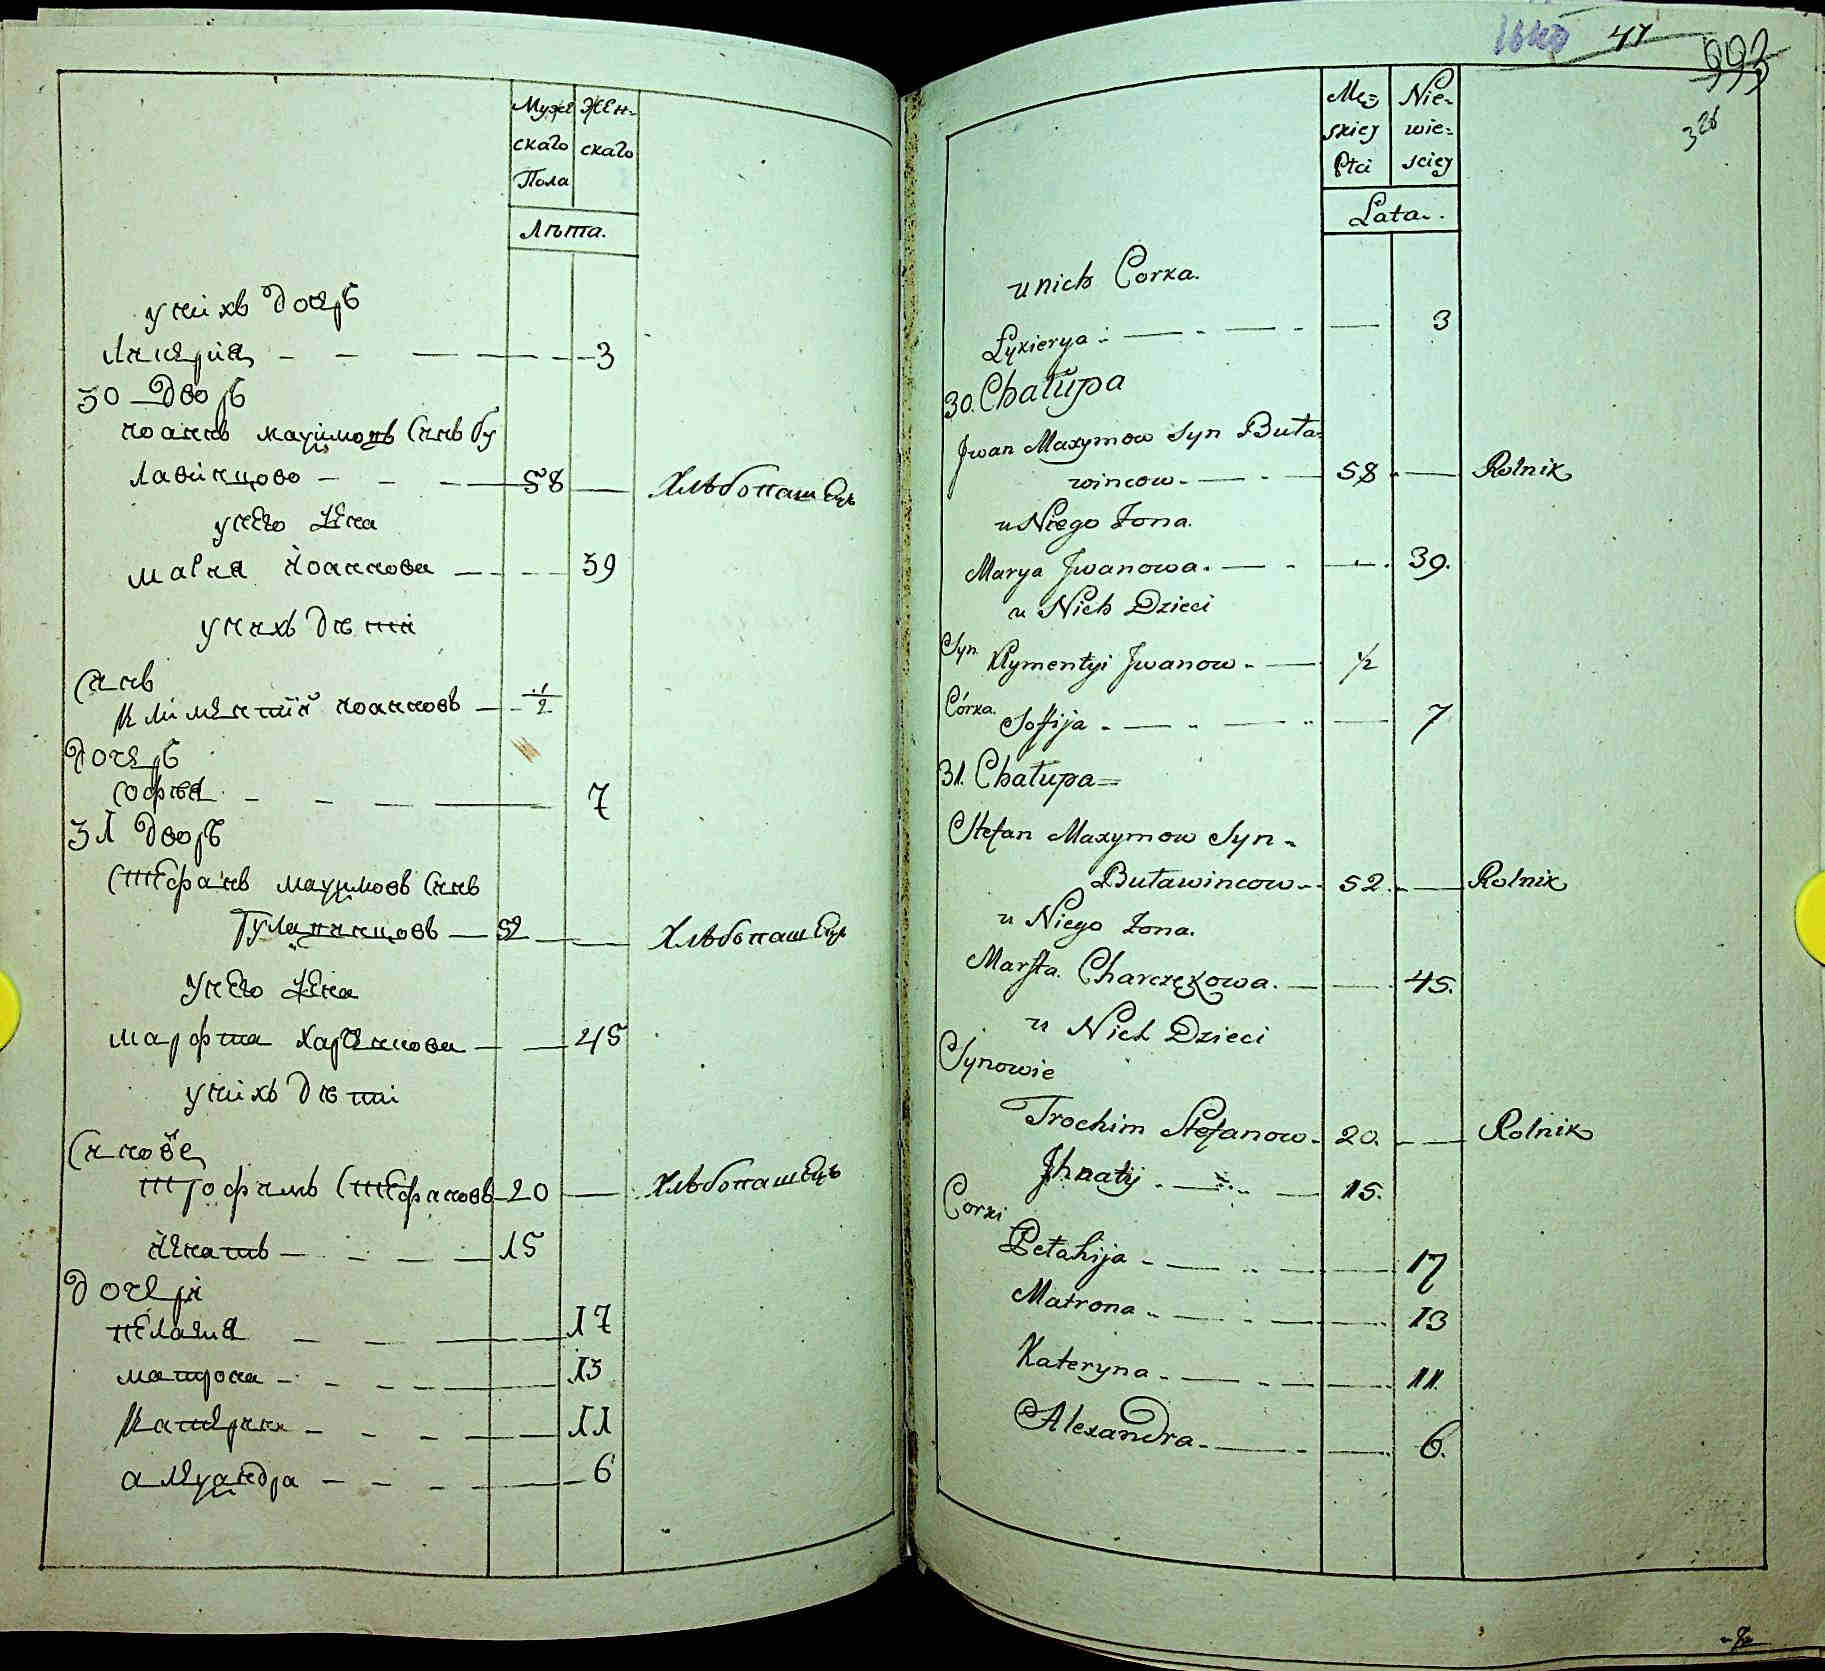 Муже Жен-
скаго скаго
Пола
Лѣта.
у нихъ дочерь
Лукерия 3
30 Дворъ
Иоаннъ Максимовъ Синъ Бу
лавинцово 58 Хлѣбопашецъ
у него жена
Мария Иоаннова 39
у нихъ дѣти
Синъ
Климентий Иоанновъ 1/2
Дочерь
София 7
31 Дворъ
Стефанъ Максимовъ Синъ
52 Хлѣбопашецъ
у него жена
Марфта Харченкова 45
у нихъ дѣти
Синове
Трофимъ Стефановъ 20 Хлѣбопашецъ
15
Дочери
Пелагия 17
Матрона 13
Катерина 11
Александра 6
47
326
Mę= Nie-
skiey wie=
Płci sciey
Lata.
u nich Corka.
Łykierya 3
30. Chałupa
Jwan Maxymow Syn Buła=
wincow 58 Rolnik
u Niego Żona.
Marya Jwanowa 39.
u Nich Dzieci
Syn Klymentyi Jwanow 1/2
Córka Soffija 7
31. Chałupa=
Stefan Maxymow Syn
Buławincow 52 Rolnik
u Niego Żona.
Marfta Charczękowa. 45.
u Nich Dzieci
Synowie
Trochim Stefanow 20. Rolnik
Jhnatij 15.
Corki
Pełahija 17
Matrona 13
Kateryna 11.
Alexandra 6.